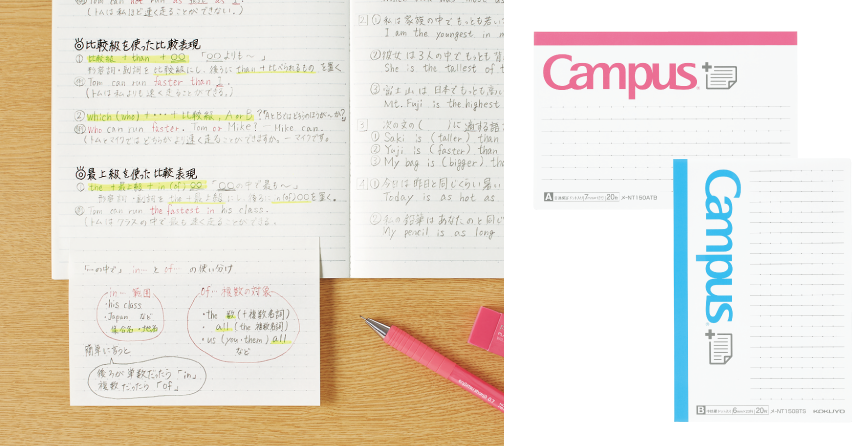 (トムは私ほど速く走ることができない。)
比較級を使った比較表現
① 比較級 + than + ○○ 「○○よりも〜」
形容詞・副詞を比較級にし、後ろに than + 比べられるもの を置く
Tom can run faster than I.
(トムは私よりも速く走ることができる。)
② which (who) + … + 比較級, A or B ?
Who can run faster, Tom or Mike? - Mike can.
(トムとマイクではどちらがより速く走ることができますか。- マイクです。)
最上級を使った比較表現
① the + 最上級 + in (of) ○○ 「○○の中で最も〜」
形容詞・副詞を the + 最上級 にし、後ろに in(of)○○を置く。
Tom can run the fastest in his class.
(トムはクラスの中で最も速く走ることができる。)
「〜の中で」 in… と of… の使い分け
in… 範囲
・his class
・Japan など
集合名・地名
of… 複数の対象
・the 数 (+複数名詞)
・all (the 複数名詞)
・us (you・them) all
など
簡単に言うと
後ろが単数だったら「in」
複数だったら「of」
② ① 私は家族の中でもっとも若い
I am the youngest in m
② 彼女は3人の中でもっとも背
She is the tallest of t
③ 富士山は日本でもっとも高い
Mt. Fuji is the highest
次の文の( )に適する語
① Saki is (taller) than
② Yuji is (faster) than
③ My bag is (bigger) tha
① 今日は昨日と同じくらい暑い
Today is as hot as
② 私の鉛筆はあなたのと同じ
My pencil is as long
Campus
A
7mm
20枚
メ-NT150ATB
Campus
B
6mm
20枚
メ-NT150BTS
KOKUYO